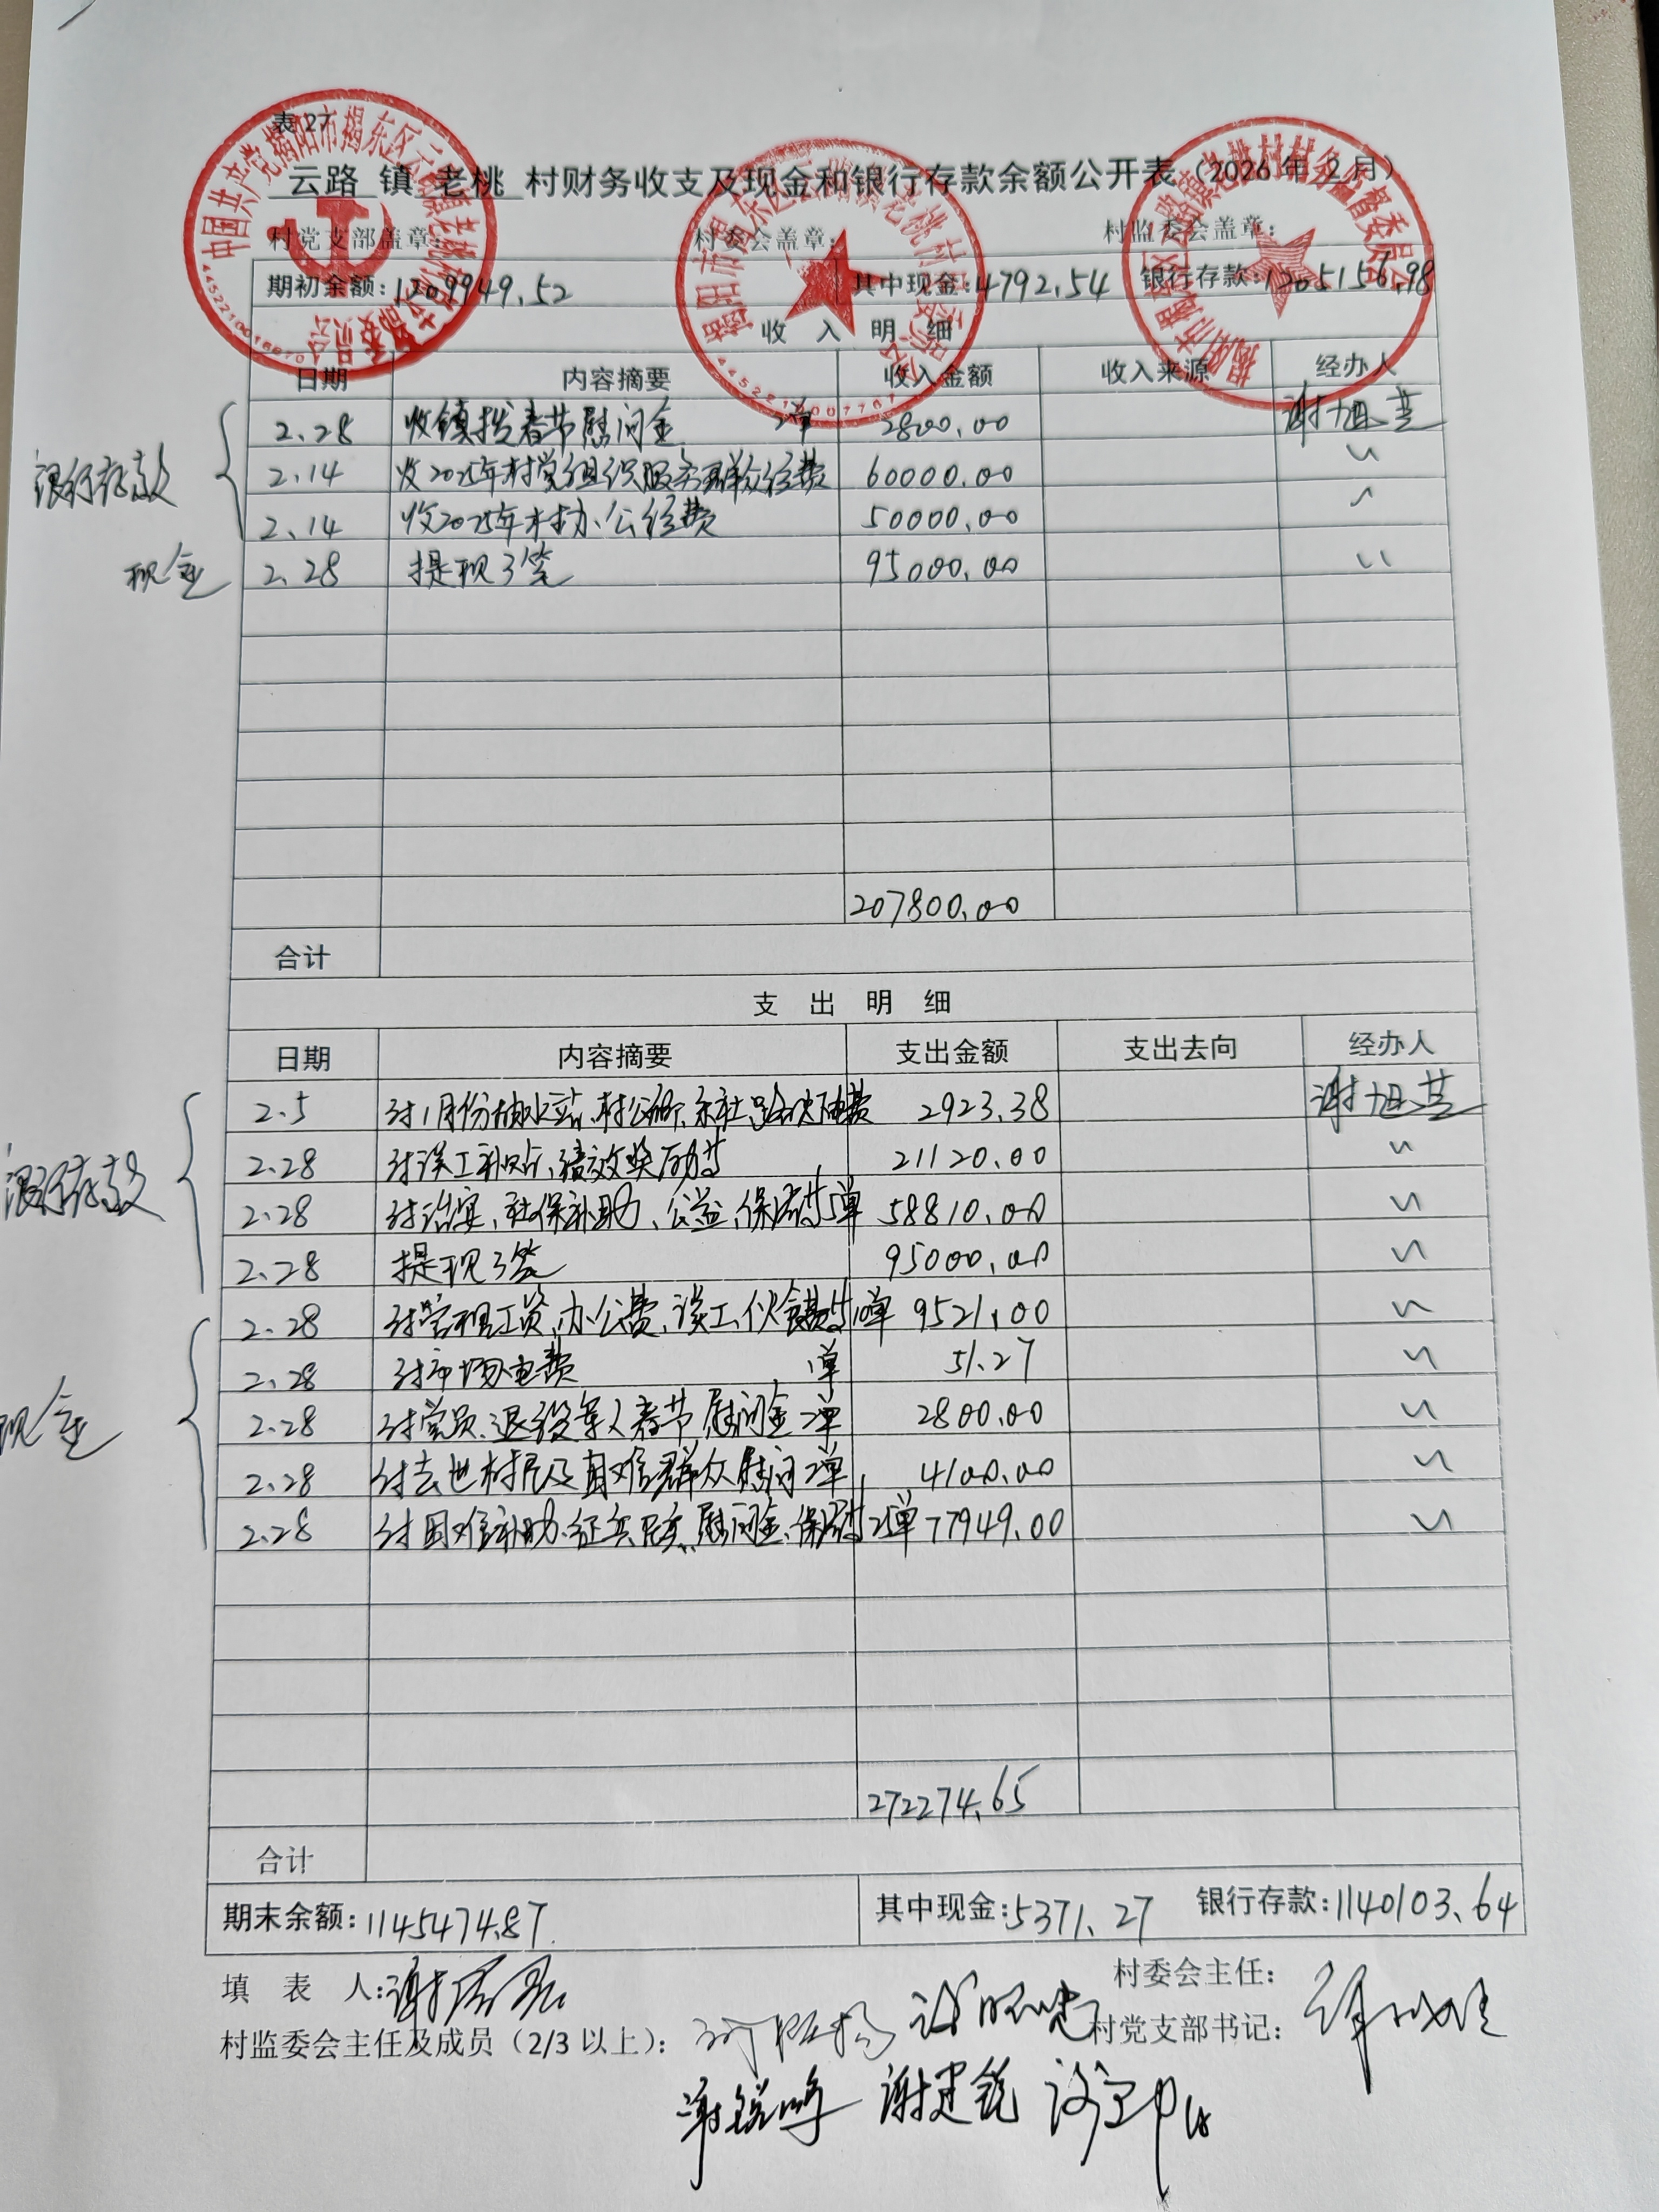 表 27
云路 镇 老桃 村财务收支及现金和银行存款余额公开表（2026 年 2 月）
村党支部盖章： 村委会盖章： 村监委会盖章：
期初余额：1209949.52 其中现金：4792.54 银行存款：1205156.98
收 入 明 细
日期 内容摘要 收入金额 收入来源 经办人
银行存款
2.28 收镇拨春节慰问金 2单 2800.00 谢旭芸
2.14 收2025年村党组织服务群众经费 60000.00 〃
2.14 收2025年村办公经费 50000.00 〃
现金 2.28 提现3笔 95000.00 〃
207800.00
合计
支 出 明 细
日期 内容摘要 支出金额 支出去向 经办人
银行存款
2.5 付1月份抽水站、村公厕、 电费 2923.38 谢旭芸
2.28 付误工补贴、绩效奖励 21120.00 〃
2.28 付治安、社保补助、公益、保洁 5单 58810.00 〃
2.28 提现3笔 95000.00 〃
现金
2.28 付管理工资、办公费、误工、伙食费 10单 9521.00 〃
2.28 付市场电费 1单 51.27 〃
2.28 付党员、退役军人春节慰问金 2单 2800.00 〃
2.28 付去世村民及困难群众慰问 2单 4100.00 〃
2.28 付困难补助、征兵、 慰问金、保洁 77949.00 〃
272274.65
合计
期末余额：1145474.87 其中现金：5371.27 银行存款：1140103.64
填 表 人： 村委会主任：
村监委会主任及成员（2/3 以上）： 村党支部书记：
谢锐鸣 谢建锐